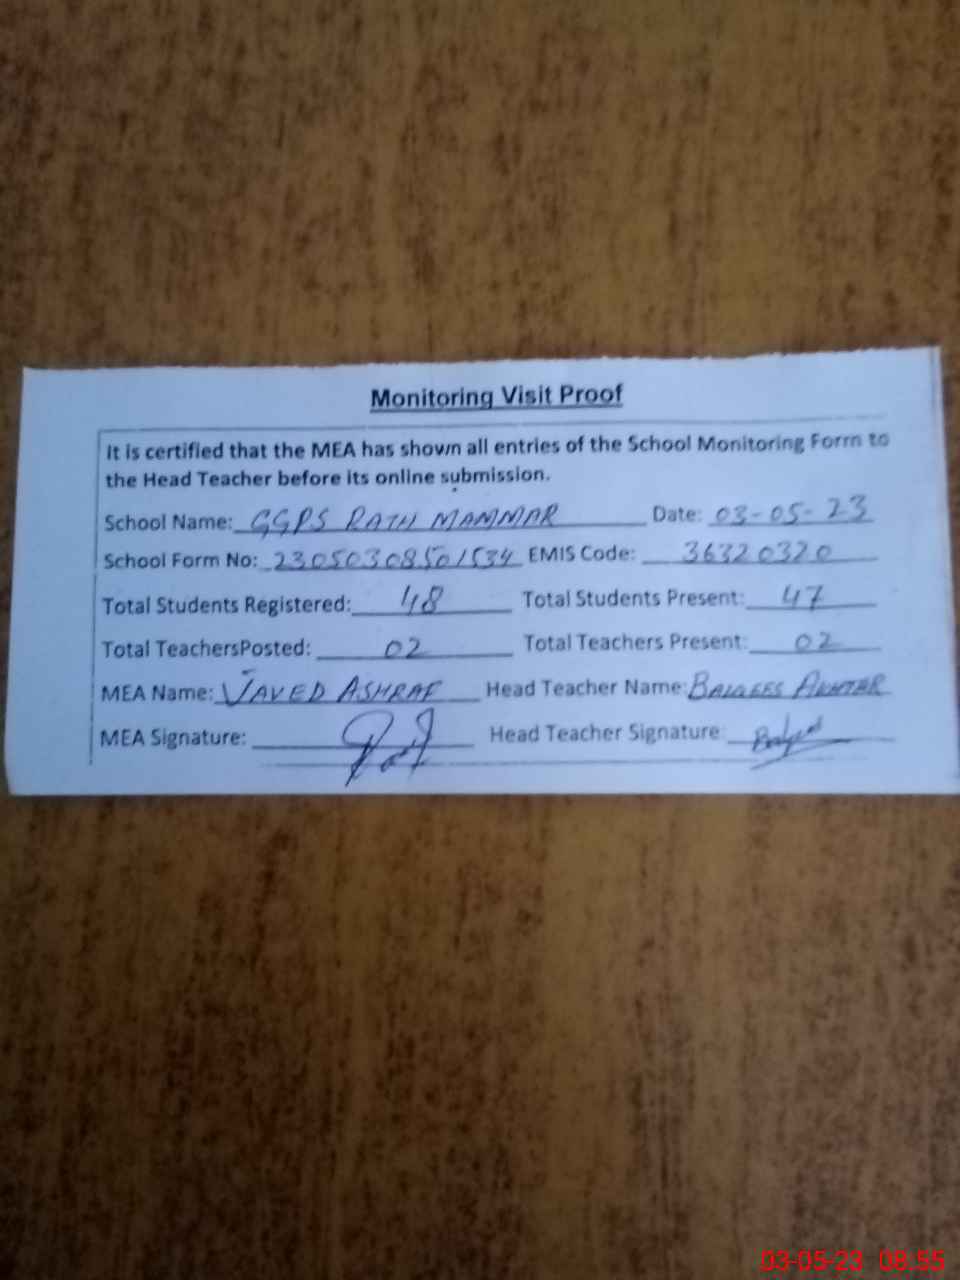 Monitoring Visit Proof
It is certified that the MEA has shown all entries of the School Monitoring Form to
the Head Teacher before its online submission.
School Name: GGPS RATH MAMMAR Date: 03-05-23
School Form No: 23050308501534 EMIS Code: 36320320
Total Students Registered: 48 Total Students Present: 47
Total TeachersPosted: 02 Total Teachers Present: 02
MEA Name: JAVED ASHRAF Head Teacher Name: BALQEES AKHTAR
MEA Signature: Head Teacher Signature:
03-05-23 08:55